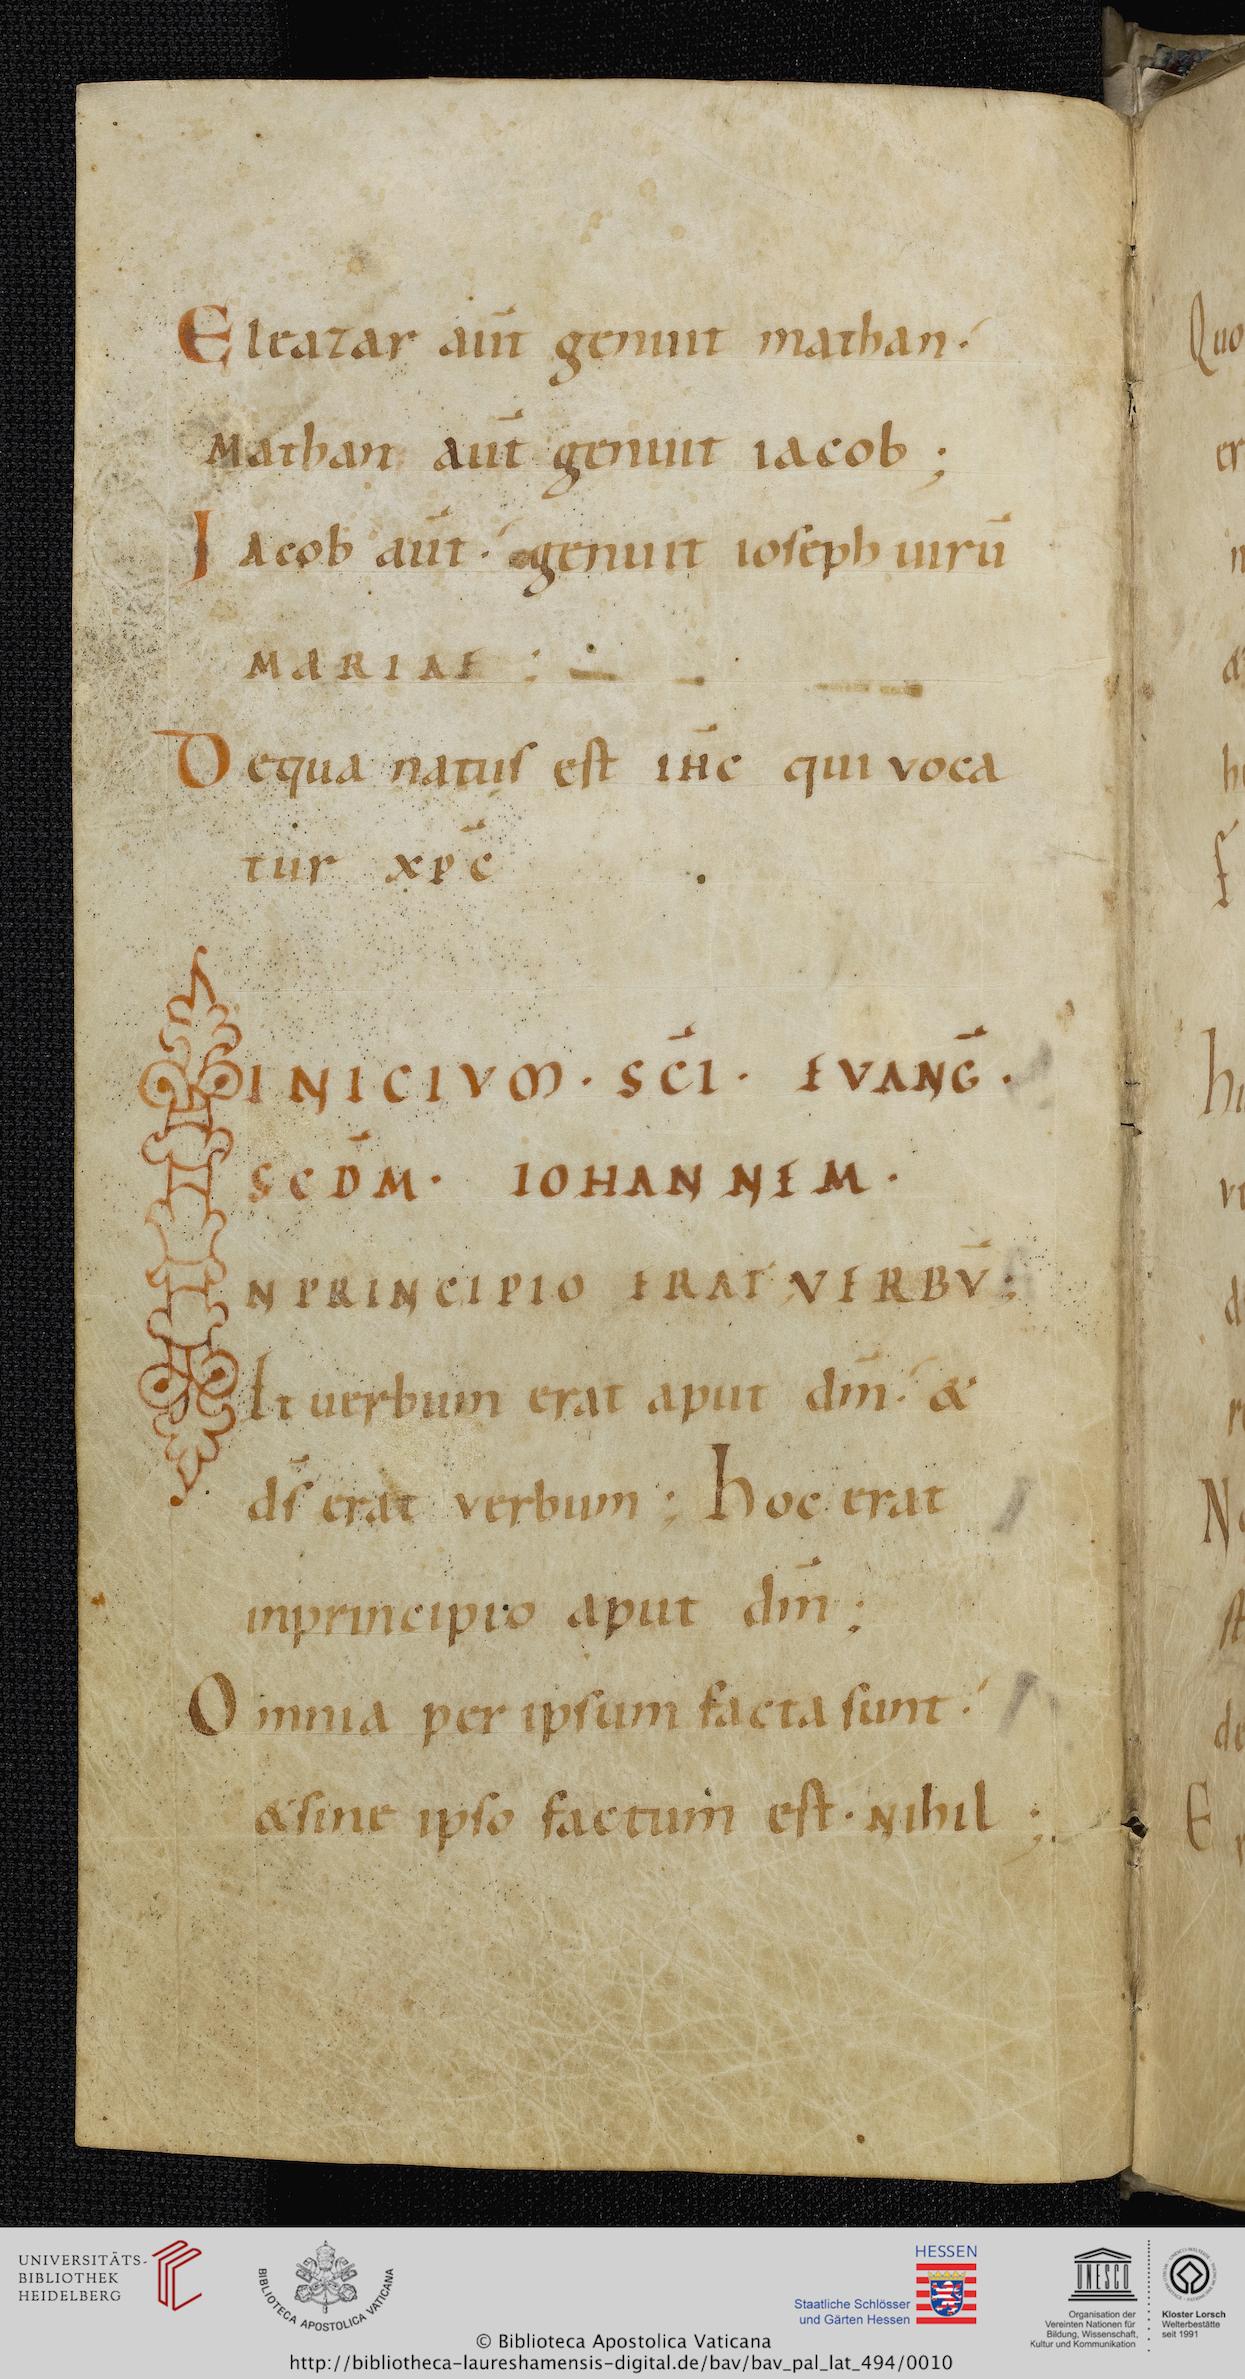 Eleazar aūt genuit mathan.
Mathan aūt genuit iacob;
Iacob aūt. genuit ioseph uirū
MARIAE :
Dequa natus est ih̄c qui voca
tur xp̄c
INICIVM. SC̄I. EVANḠ.
SCD̄M. IOHANNEM.
IN PRINCIPIO ERAT VERBV̄;
Et uerbum erat aput dm̄. &
ds̄ erat verbum; Hoc erat
inprincipio aput dm̄;
Omnia per ipsum facta sunt.
&sine ipso factum est. nihil;
Quo
er
hu
N
de
E
UNIVERSITÄTS-
BIBLIOTHEK
HEIDELBERG
BIBLIOTECA APOSTOLICA VATICANA
HESSEN
Staatliche Schlösser
und Gärten Hessen
UNESCO
Organisation der
Vereinten Nationen für
Bildung, Wissenschaft,
Kultur und Kommunikation
Kloster Lorsch
Welterbestätte
seit 1991
© Biblioteca Apostolica Vaticana
http://bibliotheca-laureshamensis-digital.de/bav/bav_pal_lat_494/0010